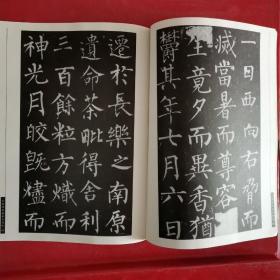 一日西向右脅而
滅當暑而尊容如
生竟夕而異香猶
鬱其年七月六日
遷於長樂之南原
遺命荼毗得舍利
三百餘粒方熾而
神光月皎既燼而